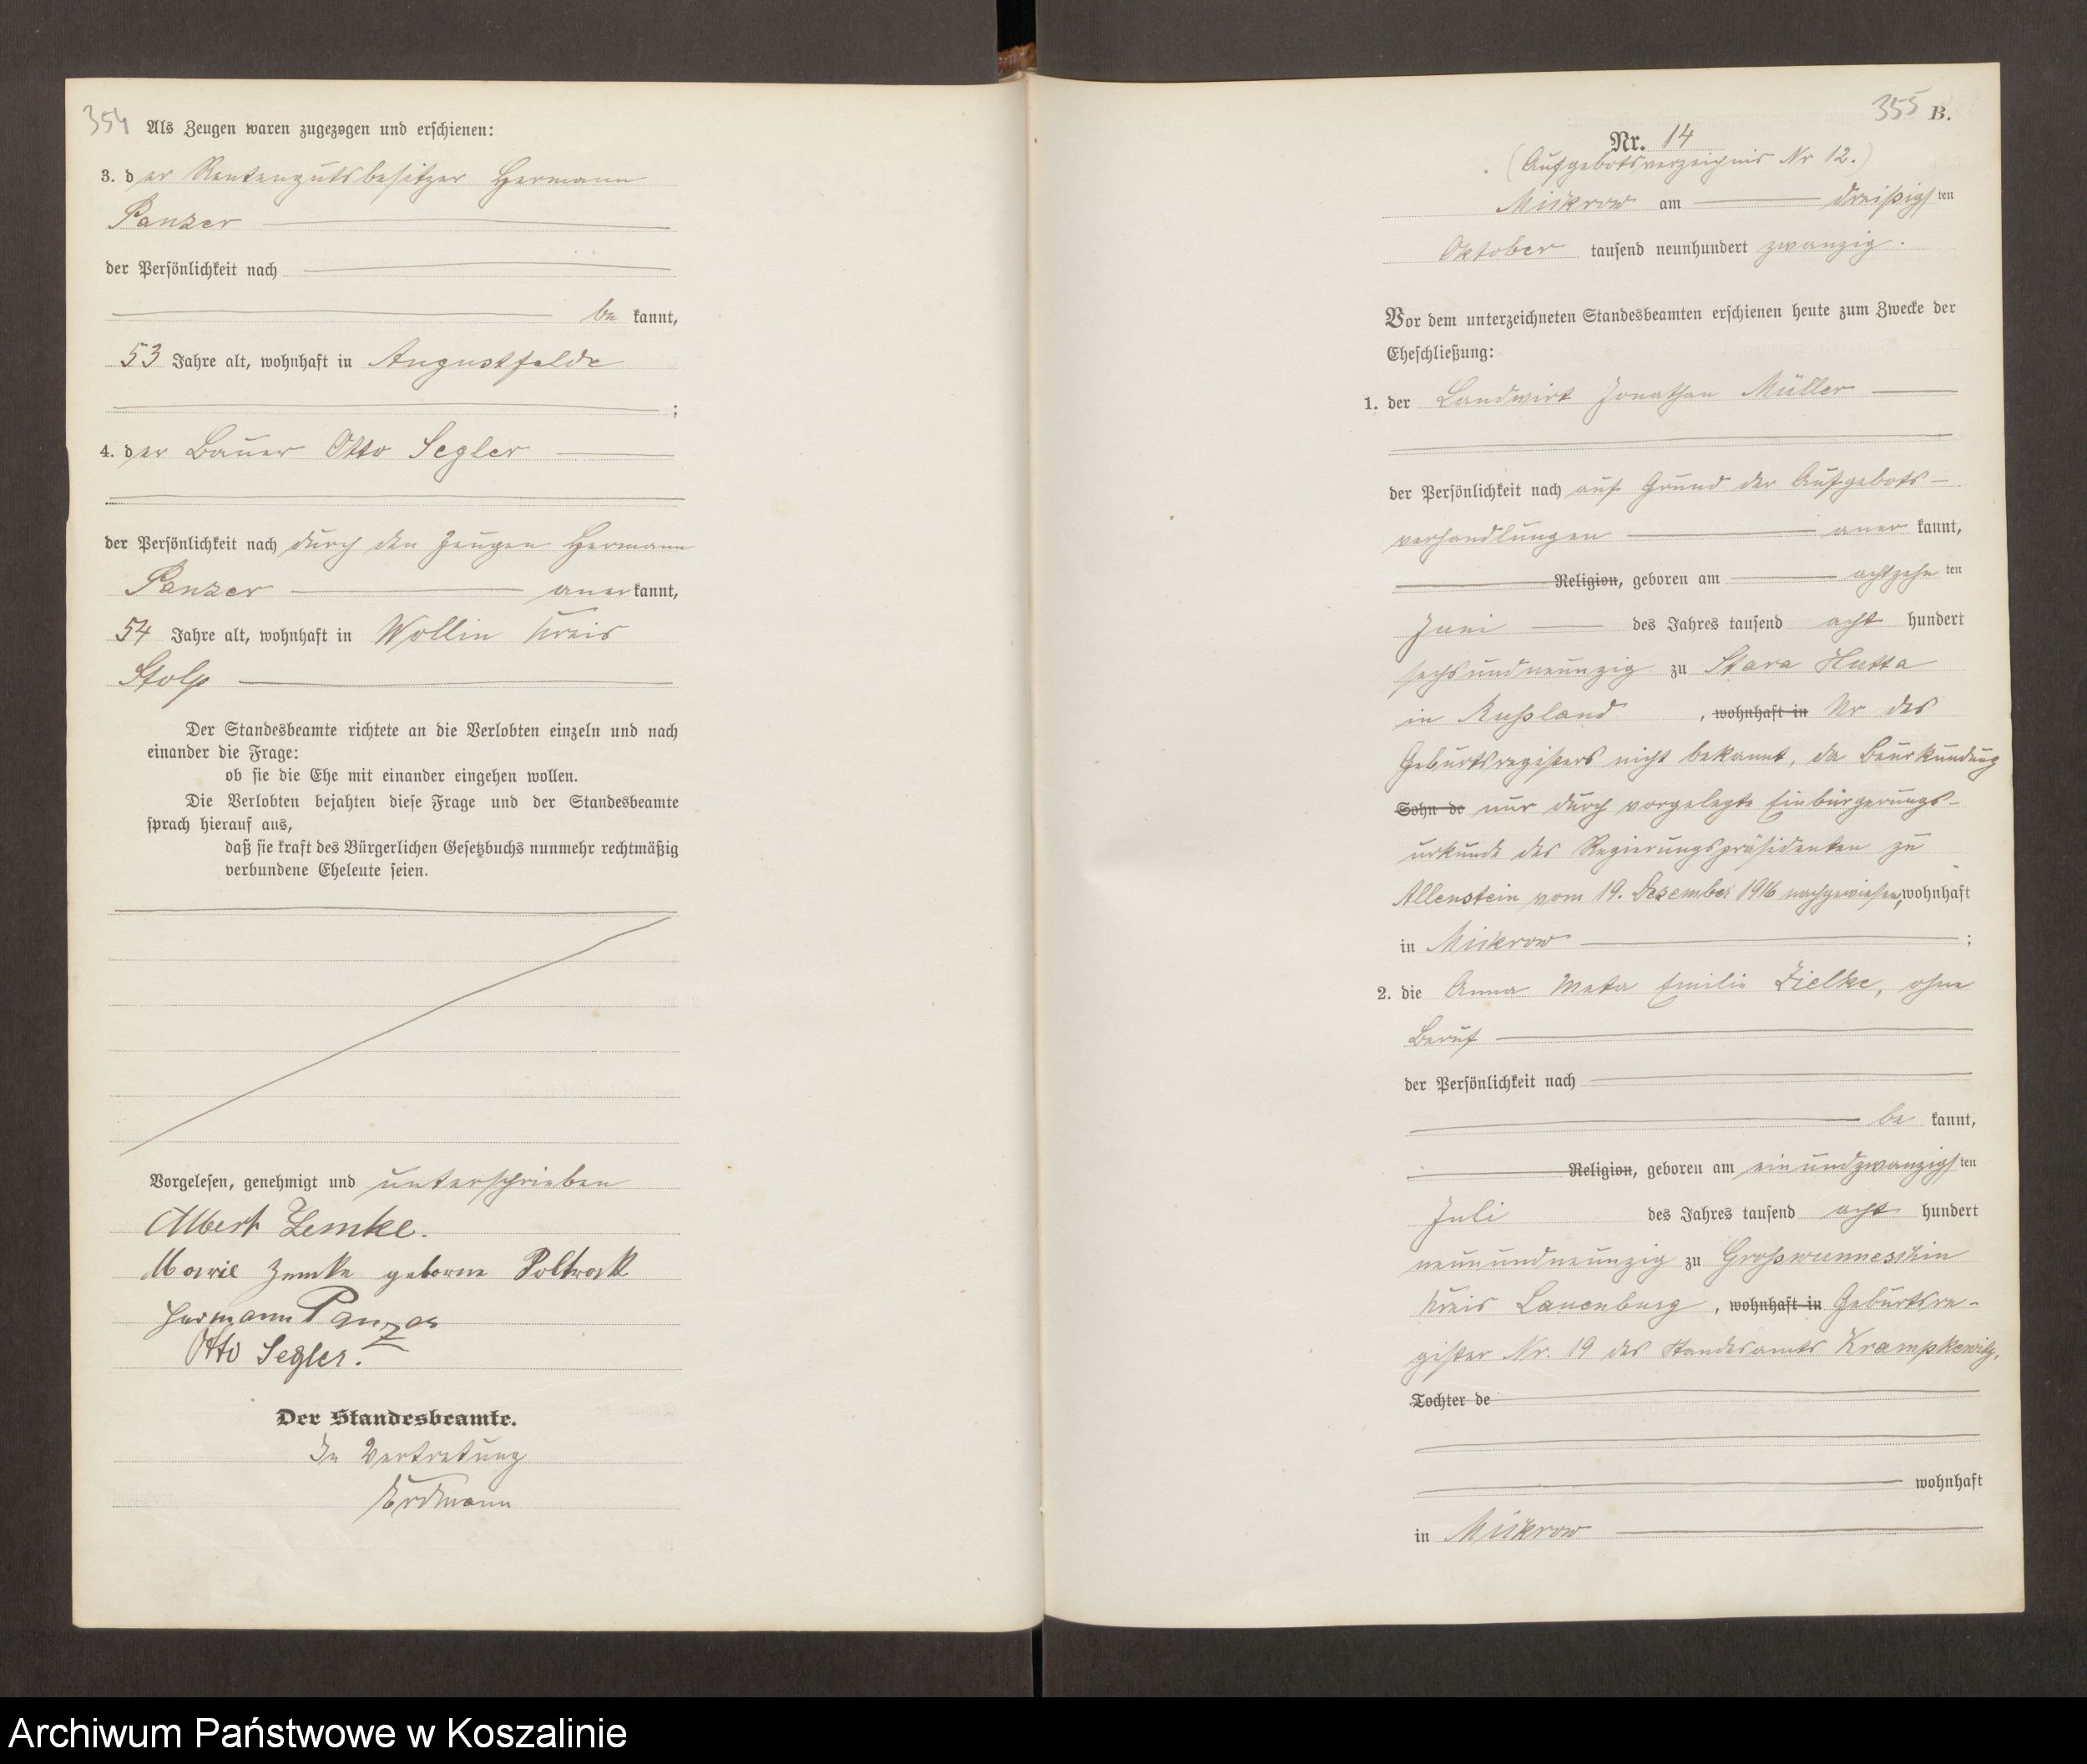 354
Als Zeugen waren zugezogen und erschienen:
3. der Rentengutsbesitzer Hermann
Panzer
der Persönlichkeit nach
be kannt,
53 Jahre alt, wohnhaft in Augustfelde
;
4. der Bauer Otto Segler
der Persönlichkeit nach durch den Zeugen Hermann
Panzer aner kannt,
54 Jahre alt, wohnhaft in Wollin Kreis
Stolp
Der Standesbeamte richtete an die Verlobten einzeln und nach
einander die Frage:
ob sie die Ehe mit einander eingehen wollen.
Die Verlobten bejahten diese Frage und der Standesbeamte
sprach hierauf aus,
daß sie kraft des Bürgerlichen Gesetzbuchs nunmehr rechtmäßig
verbundene Eheleute seien.
Vorgelesen, genehmigt und unterschrieben
Albert Zemke.
Marie Zemke geborne Poltrock
Hermann Panzer
Otto Segler.
Der Standesbeamte.
In Vertretung
Erdmann
355 B.
Nr. 14
(Aufgebotsverzeichnis Nr 12.)
Mickrow am dreißigsten
Oktober tausend neunhundert zwanzig.
Vor dem unterzeichneten Standesbeamten erschienen heute zum Zwecke der
Eheschließung:
1. der Landwirt Jonathan Müller
der Persönlichkeit nach auf Grund der Aufgebots-
verhandlungen aner kannt,
Religion, geboren am achtzehn ten
Juni des Jahres tausend acht hundert
sechsundneunzig zu Stara Hutta
in Rußland, wohnhaft in Nr des
Geburtsregisters nicht bekannt, da Beurkundung
Sohn de nur durch vorgelegte Einbürgerungs-
urkunde des Regierungspräsidenten zu
Allenstein vom 19. Dezember 1916 nachgewiesen, wohnhaft
in Mickrow ;
2. die Anna Meta Emilie Zielke, ohne
Beruf
der Persönlichkeit nach
be kannt,
Religion, geboren am einundzwanzigsten
Juli des Jahres tausend acht hundert
neunundneunzig zu Großwunneschin
Kreis Lauenburg, wohnhaft in Geburtsre-
gister Nr. 19 des Standesamts Krampkewitz,
Tochter de
wohnhaft
in Mickrow
Archiwum Państwowe w Koszalinie